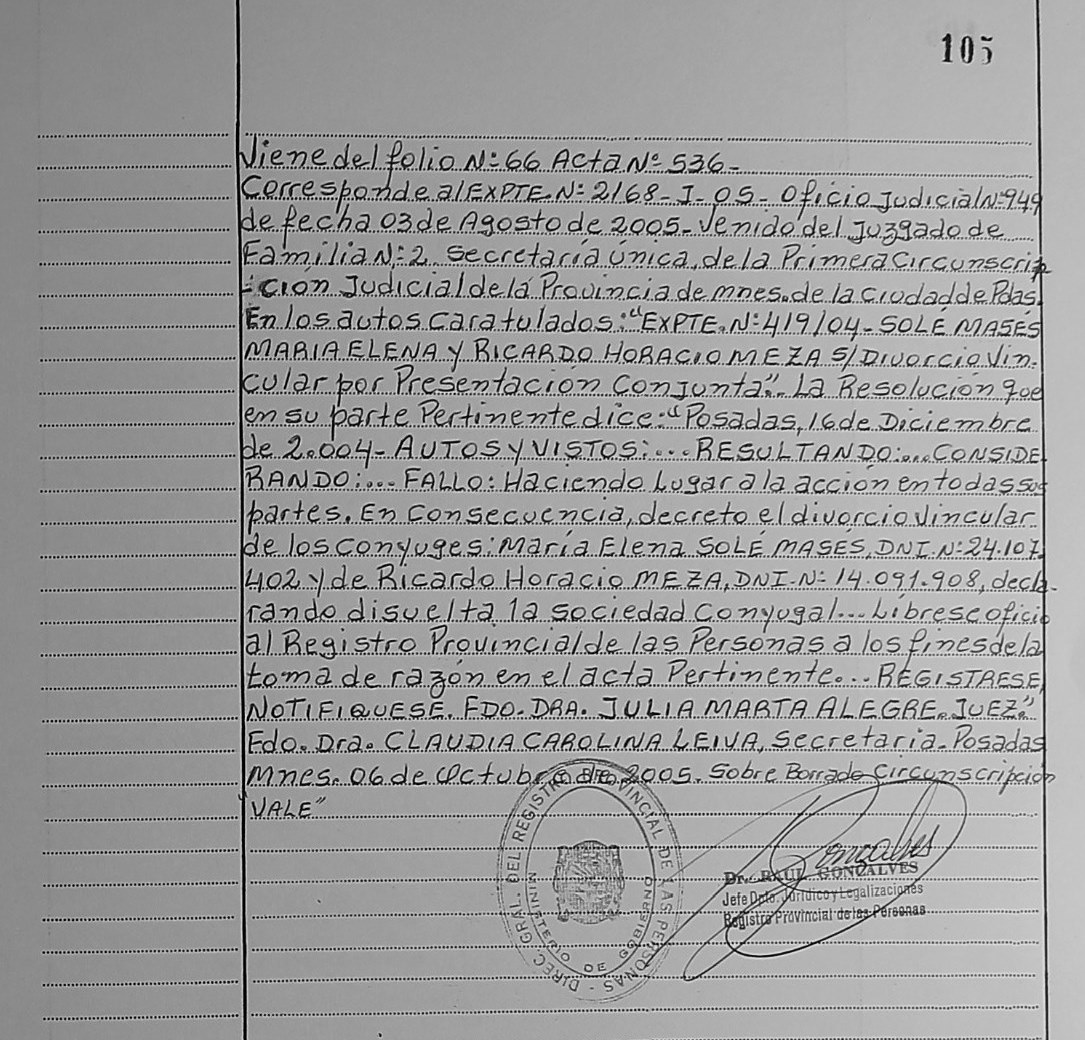 105
Viene del folio Nº 66 Acta Nº 536-
Corresponde al EXPTE-Nº 2168-I-05- Oficio Judicial Nº 949
de fecha 03 de Agosto de 2005-Venido del Juzgado de
Familia Nº 2 Secretaría única, de la Primera Circunscrip
-ción Judicial de la Provincia de mnes. de la ciudad de Pdas.
En los autos caratulados: "EXPTE.Nº 419/04-SOLÉ MASÉS
MARIA ELENA y RICARDO HORACIO MEZA S/Divorcio Vin-
cular por Presentación Conjunta".-La Resolución que
en su parte Pertinente dice: "Posadas, 16 de Diciembre
de 2.004-AUTOS y VISTOS:... RESULTANDO:...CONSIDE
RANDO:... FALLO: Haciendo Lugar a la acción en todas sus
partes. En Consecuencia, decreto el divorcio Vincular
de los conyuges: María Elena SOLÉ MASÉS, DNI.Nº 24.107.
402 y de Ricardo Horacio MEZA, DNI-Nº 14.091.908, decla-
rando disuelta la sociedad Conyugal... Librese oficio
al Registro Provincial de las Personas a los fines de la
toma de razón en el acta Pertinente... REGISTRESE,
NOTIFIQUESE. FDO. DRA. JULIA MARTA ALEGRE. JUEZ."
Fdo. Dra. CLAUDIA CAROLINA LEIVA, Secretaria. Posadas
Mnes. 06 de Octubre de 2005. Sobre Borrado Circunscripción
"VALE"
DIREC. GRAL. DEL REGISTRO PROVINCIAL DE LAS PERSONAS -
MINISTERIO DE GOBIERNO
Gonçalves
Dr. RAUL GONÇALVES
Jefe Dpto. Jurídico y Legalizaciones
Registro Provincial de las Personas